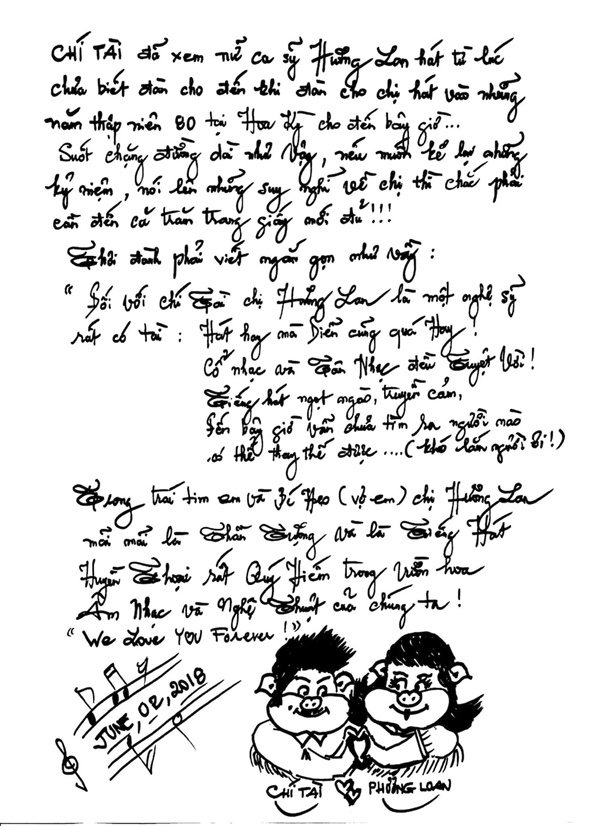 CHÍ TÀI đã xem nữ ca sỹ Hương Lan hát từ lúc
chưa biết đàn cho đến khi đàn cho chị hát vào những
năm thập niên 80 tại Hoa Kỳ cho đến bây giờ...
Suốt chặng đường dài như vậy, nếu muốn kể lại những
kỷ niệm, nói lên những suy nghĩ về chị thì chắc phải
cần đến cả trăm trang giấy mới đủ!!!
Thôi đành phải viết ngắn gọn như vầy:
“Đối với chí Tài chị Hương Lan là một nghệ sỹ
rất có tài: Hát hay mà Diễn cũng quá Hay!
Cổ nhạc và Tân Nhạc đều Tuyệt Vời!
Tiếng hát ngọt ngào, truyền cảm,
Đến bây giờ vẫn chưa tìm ra người nào
có thể thay thế được....(khó lắm người ơi!)
Trong trái tim em và Bé Heo (vợ em) chị Hương Lan
mãi mãi là Thần Tượng và là Tiếng Hát
Huyền Thoại rất Quý Hiếm trong vườn hoa
Âm Nhạc và Nghệ Thuật của chúng ta!
“We Love YOU Forever!”
JUNE, 02, 2018
CHÍ TÀI PHƯƠNG LOAN